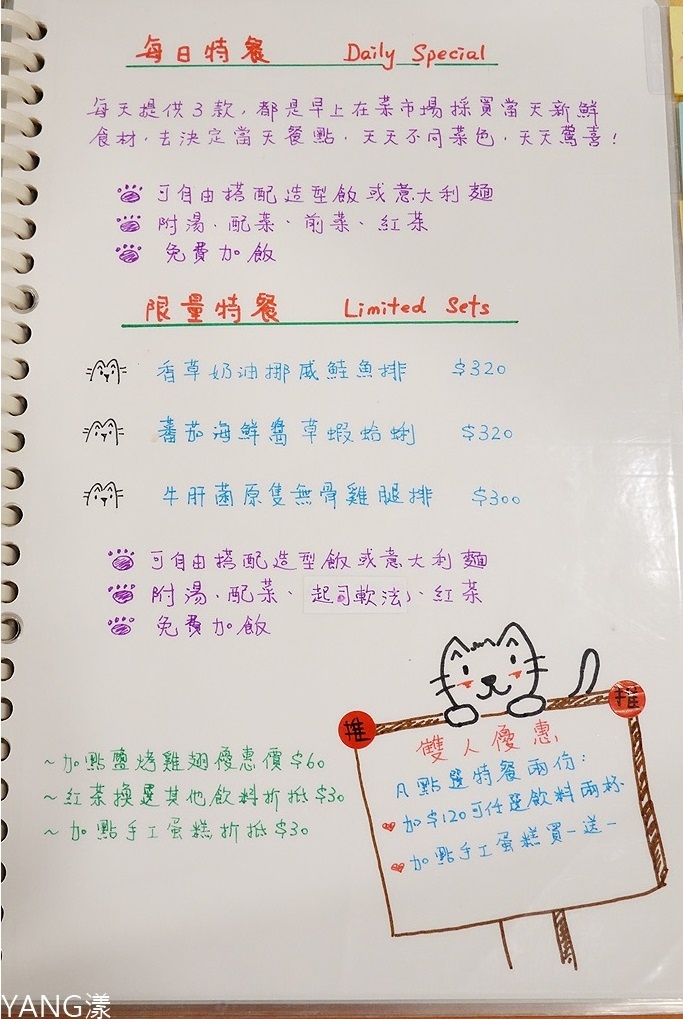 每日特餐 Daily Special
每天提供3款，都是早上在菜市場採買當天新鮮
食材，去決定當天餐點，天天不同菜色，天天驚喜！
可自由搭配造型飯或意大利麵
附湯、配菜、前菜、紅茶
免費加飯
限量特餐 Limited Sets
香草奶油挪威鮭魚排 $320
蕃茄海鮮醬草蝦蛤蜊 $320
牛肝菌原隻無骨雞腿排 $300
可自由搭配造型飯或意大利麵
附湯、配菜、起司軟法、紅茶
免費加飯
~加點鹽烤雞翅優惠價$60
~紅茶換選其他飲料折抵$30
~加點手工蛋糕折抵$30
推 推
雙人優惠
凡點選特餐兩份：
加$120可任選飲料兩杯
加點手工蛋糕買一送一
YANG漾